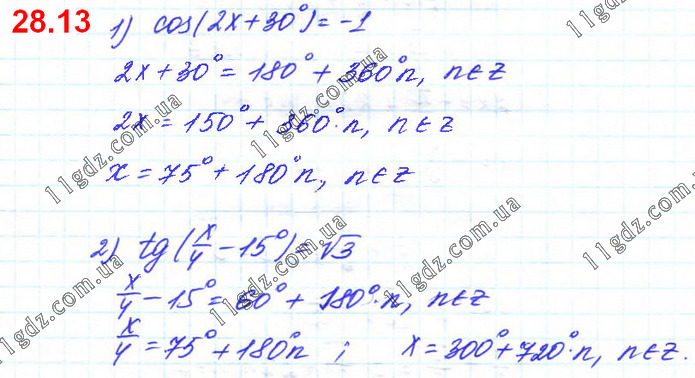 28.13
1) cos(2x+30°)=-1
2x+30°=180°+360°n, n∈Z
2x=150°+360°·n, n∈Z
x=75°+180°n, n∈Z
2) tg(x/4-15°)=√3
x/4-15°=60°+180°·n, n∈Z
x/4=75°+180°n ; x=300°+720°·n, n∈Z.
11gdz.com.ua
11gdz.com.ua
11gdz.com.ua
11gdz.com.ua
11gdz.com.ua
11gdz.com.ua
11gdz.com.ua